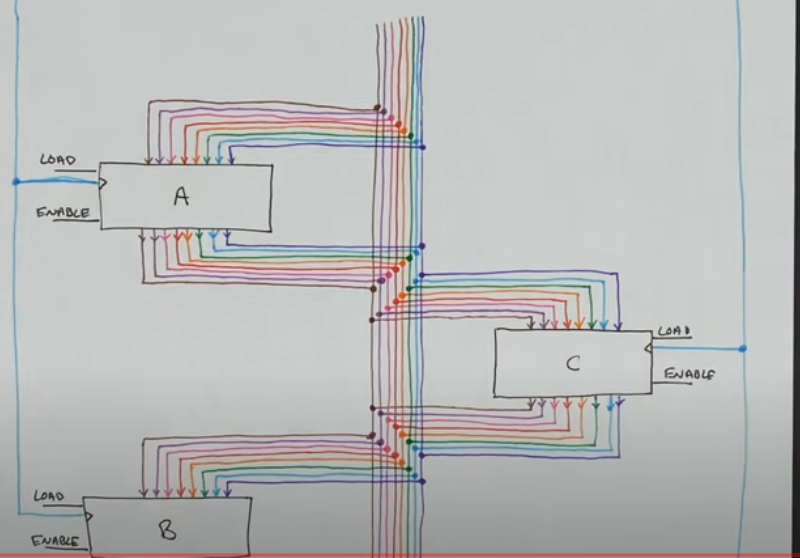 LOAD
A
ENABLE
LOAD
C
ENABLE
LOAD
B
ENABLE